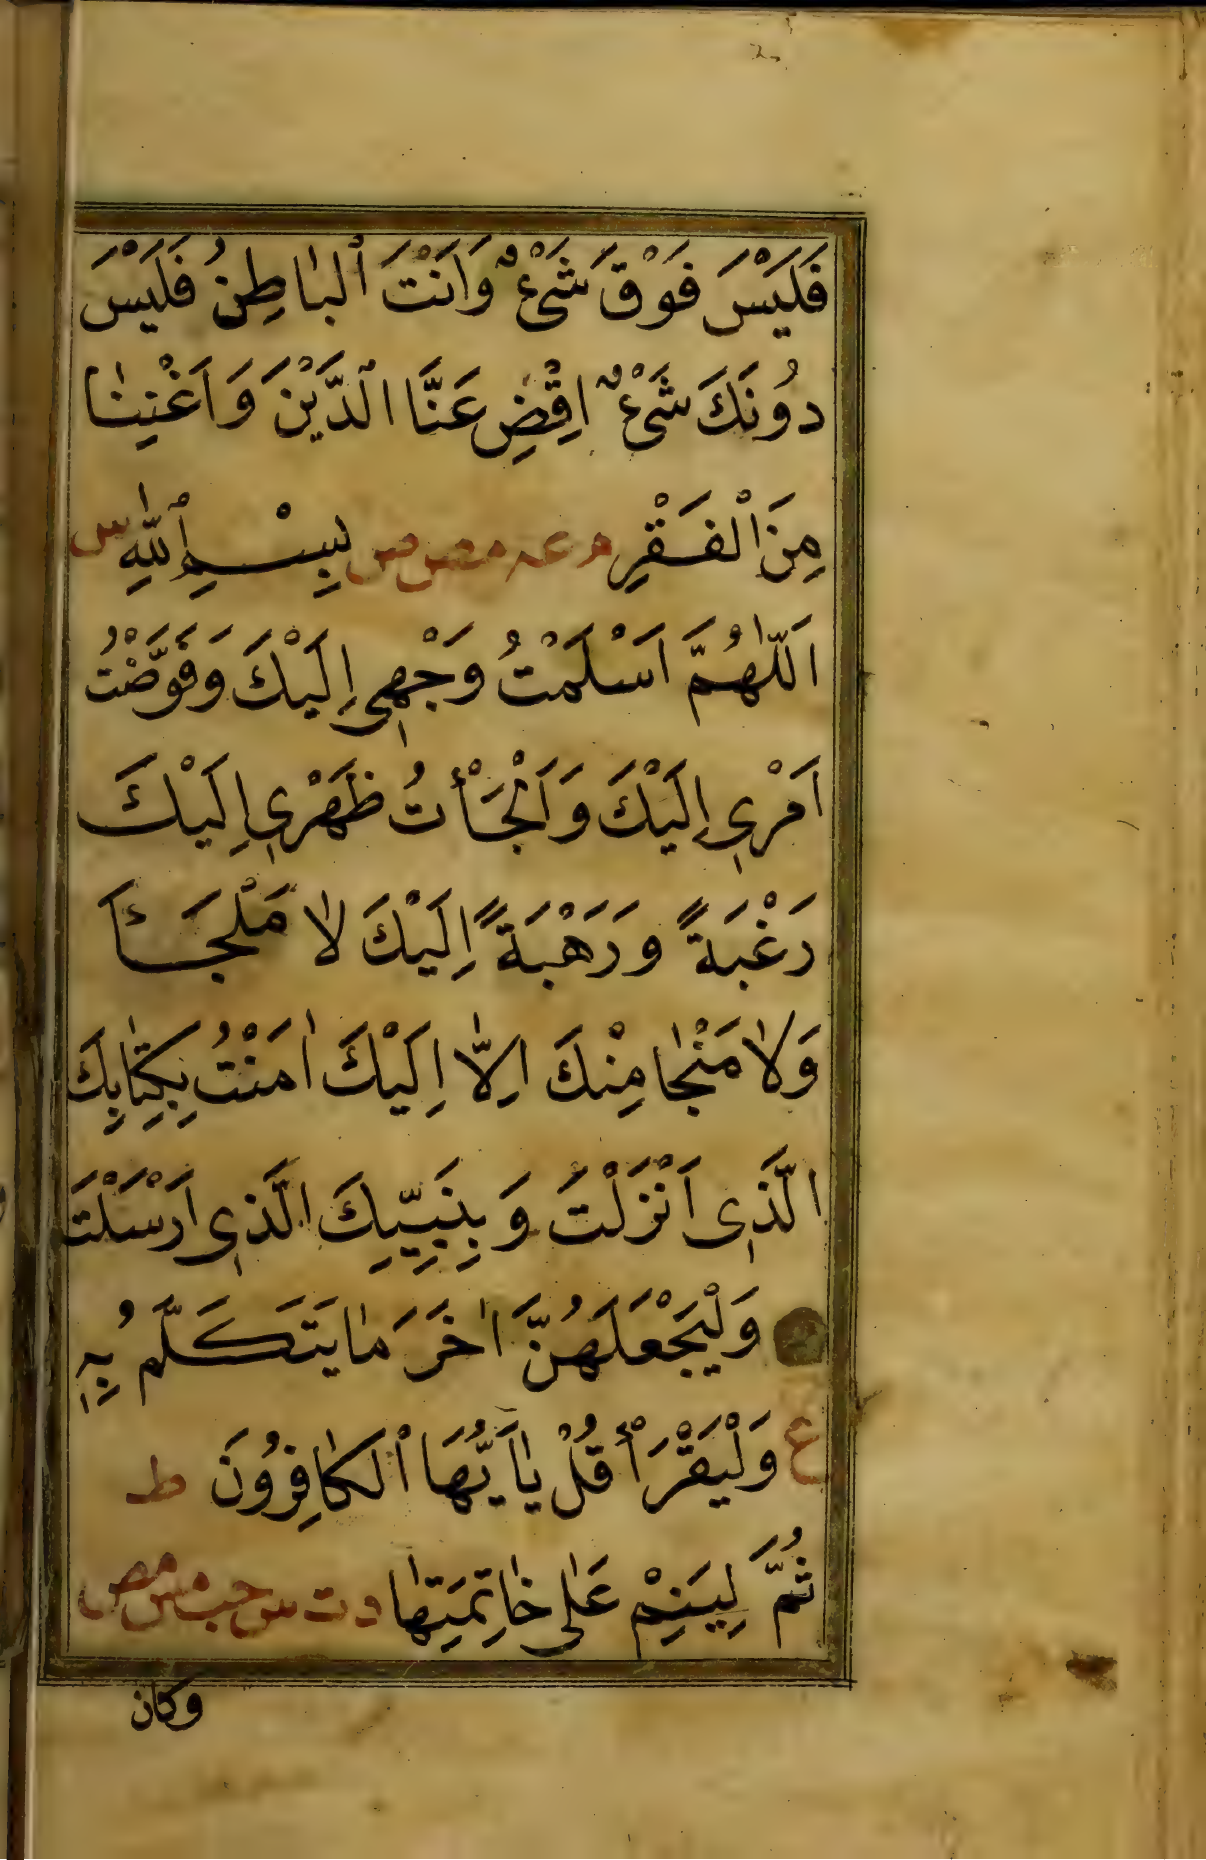 فَلَيْسَ فَوْقَ شَيْءٌ وَاَنْتَ ٱلْبَاطِنُ فَلَيْسَ
دُونَكَ شَيْءٌ اِقْضِ عَنَّا الدَّيْنَ وَاَغْنِنَا
مِنَ الْفَقْرِ م عه مص ص بِسْمِ اللّٰهِ س
اَللّٰهُمَّ اَسْلَمْتُ وَجْهِي اِلَيْكَ وَفَوَّضْتُ
اَمْرِي اِلَيْكَ وَاَلْجَأْتُ ظَهْرِي اِلَيْكَ
رَغْبَةً وَرَهْبَةً اِلَيْكَ لَا مَلْجَأَ
وَلَا مَنْجَا مِنْكَ اِلَّا اِلَيْكَ اٰمَنْتُ بِكِتَابِكَ
الَّذِي اَنْزَلْتَ وَبِنَبِيِّكَ الَّذِي اَرْسَلْتَ
وَلْيَجْعَلَهُنَّ اٰخَرَ مَا يَتَكَلَّمُ بِهِ
ع وَلْيَقْرَأْ قُلْ يَا اَيُّهَا ٱلْكَافِرُونَ ط
ثُمَّ لِيَنِمْ عَلٰى خَاتِمَتِهَا د ت س حب مس مص
وكان